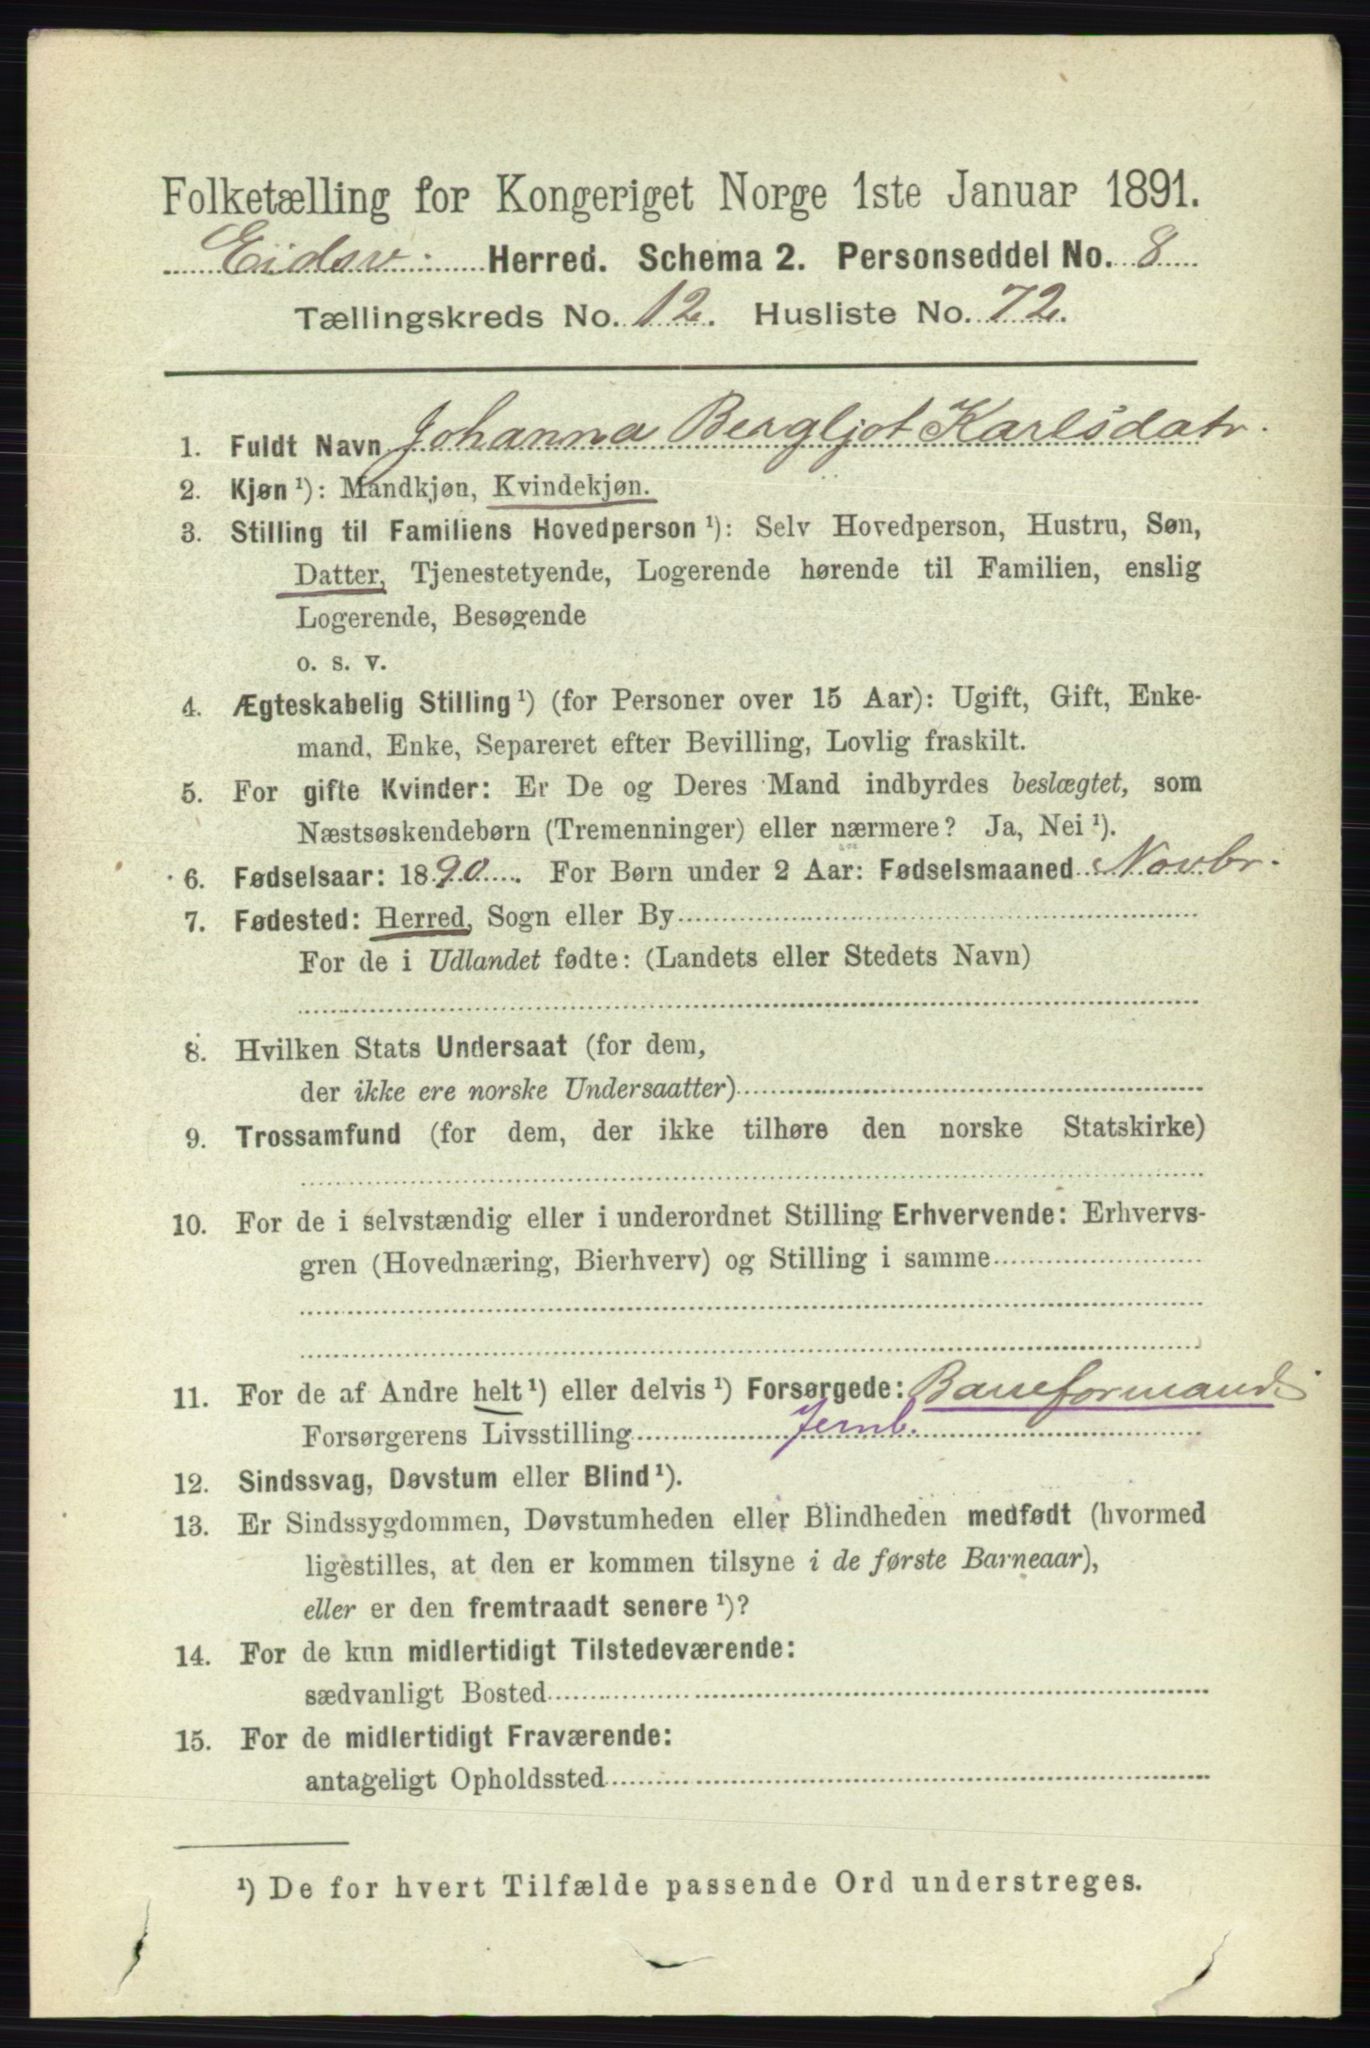 Folketælling for Kongeriget Norge 1ste Januar 1891.
Eidsv. Herred. Schema 2. Personseddel No. 8
Tællingskreds No. 12. Husliste No. 72.
1. Fuldt Navn Johanna Bergljot Karlsdatr.
2. Kjøn ¹): Mandkjøn, Kvindekjøn.
3. Stilling til Familiens Hovedperson ¹): Selv Hovedperson, Hustru, Søn,
Datter, Tjenestetyende, Logerende hørende til Familien, enslig
Logerende, Besøgende
o. s. v.
4. Ægteskabelig Stilling ¹) (for Personer over 15 Aar): Ugift, Gift, Enke-
mand, Enke, Separeret efter Bevilling, Lovlig fraskilt.
5. For gifte Kvinder: Er De og Deres Mand indbyrdes beslægtet, som
Næstsøskendebørn (Tremenninger) eller nærmere? Ja, Nei ¹).
6. Fødselsaar: 1890. For Børn under 2 Aar: Fødselsmaaned Novbr.
7. Fødested: Herred, Sogn eller By
For de i Udlandet fødte: (Landets eller Stedets Navn)
8. Hvilken Stats Undersaat (for dem,
der ikke ere norske Undersaatter)
9. Trossamfund (for dem, der ikke tilhøre den norske Statskirke)
10. For de i selvstændig eller i underordnet Stilling Erhvervende: Erhvervs-
gren (Hovednæring, Bierhverv) og Stilling i samme
11. For de af Andre helt ¹) eller delvis ¹) Forsørgede: Baneformand
Forsørgerens Livsstilling Jernb.
12. Sindssvag, Døvstum eller Blind ¹).
13. Er Sindssygdommen, Døvstumheden eller Blindheden medfødt (hvormed
ligestilles, at den er kommen tilsyne i de første Barneaar),
eller er den fremtraadt senere ¹)?
14. For de kun midlertidigt Tilstedeværende:
sædvanligt Bosted
15. For de midlertidigt Fraværende:
antageligt Opholdssted
¹) De for hvert Tilfælde passende Ord understreges.